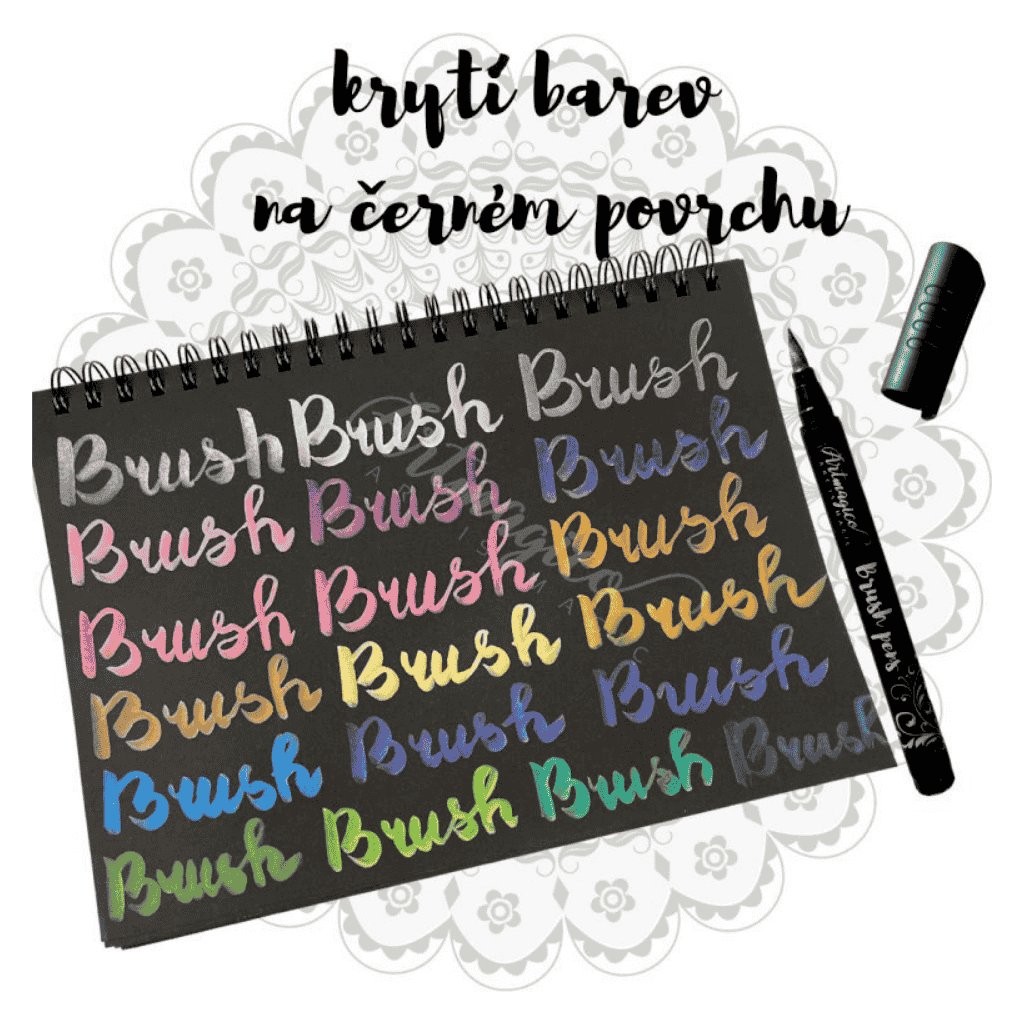 krytí barev
na černém povrchu
Brush Brush Brush
Brush Brush Brush
Brush Brush Brush
Brush Brush Brush
Brush Brush Brush
Brush Brush Brush Brush
Artmagico
Artmagico
Brush pens